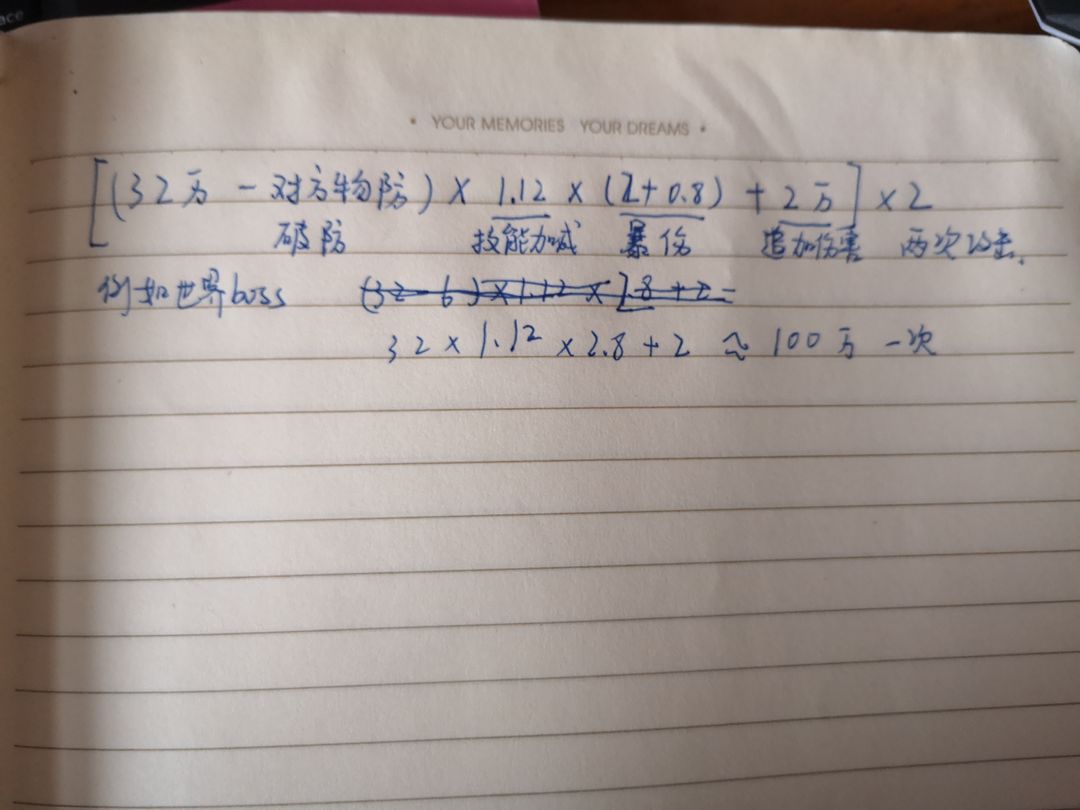 ace
• YOUR MEMORIES YOUR DREAMS •
[(32万 - 对方物防) × 1.12 × (2+0.8) + 2万] × 2
破防 技能加碱 暴伤 追加伤害 两次攻击.
例如世界boss (32-6)×1.12×2.8+2=
32×1.12×2.8+2 ≈ 100万 一次